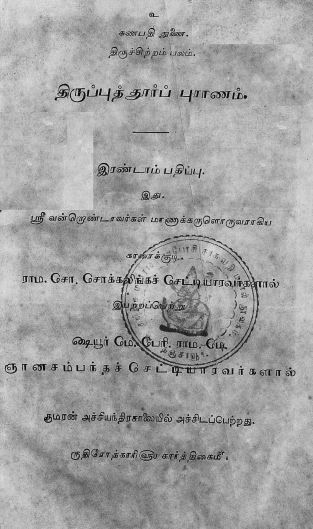 உ
கணபதி துணை.
திருச்சிற்றம்பலம்.
திருப்புத்தூர்ப் புராணம்.
இரண்டாம் பதிப்பு.
இது.
ஸ்ரீ வன்றொண்டரவர்கள் மாணாக்கருளொருவராகிய
காரைக்குடி,
ராம. சொ. சொக்கலிங்கச் செட்டியாரவர்களால்
இயற்றப்பெற்று
மே. பெரி. ராம. மெ.
ஞானசம்பந்தச் செட்டியாரவர்களால்
குமரன் அச்சியந்திரசாலையில் அச்சிடப்பெற்றது.
ருதிரோத்காரி௵ கார்த்திகை௴.